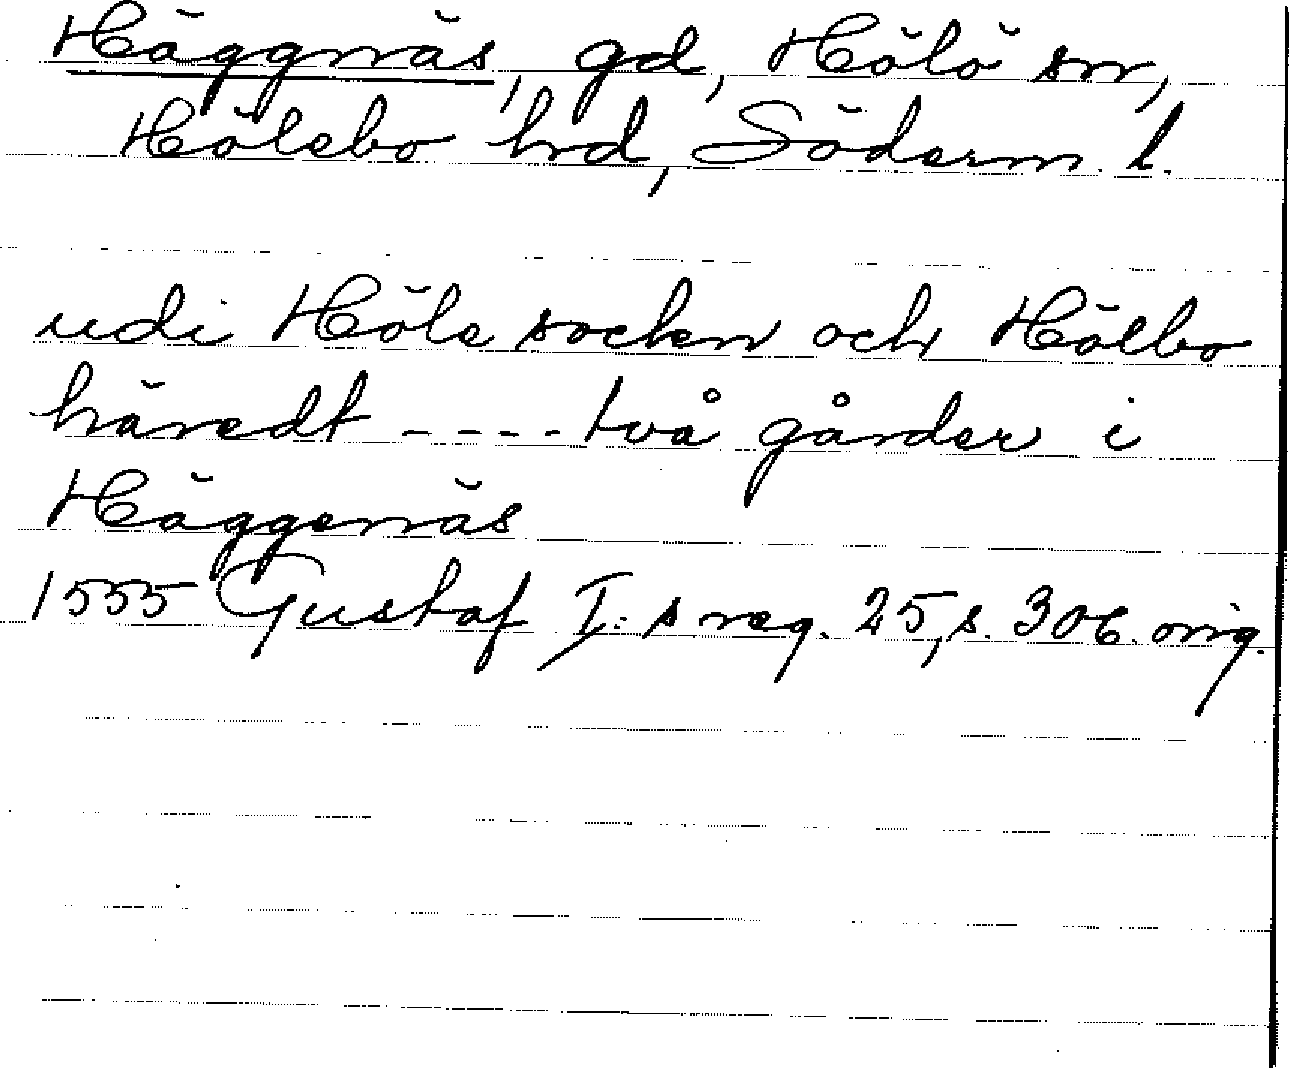 Häggnäs, gd, Hölö sn,
Hölebo hrd, Söderm. l.
udi Höle socken och Hölbo
häredt ---- två gårder i
Häggenäs
1555 Gustaf I:s reg. 25, s. 306. orig.